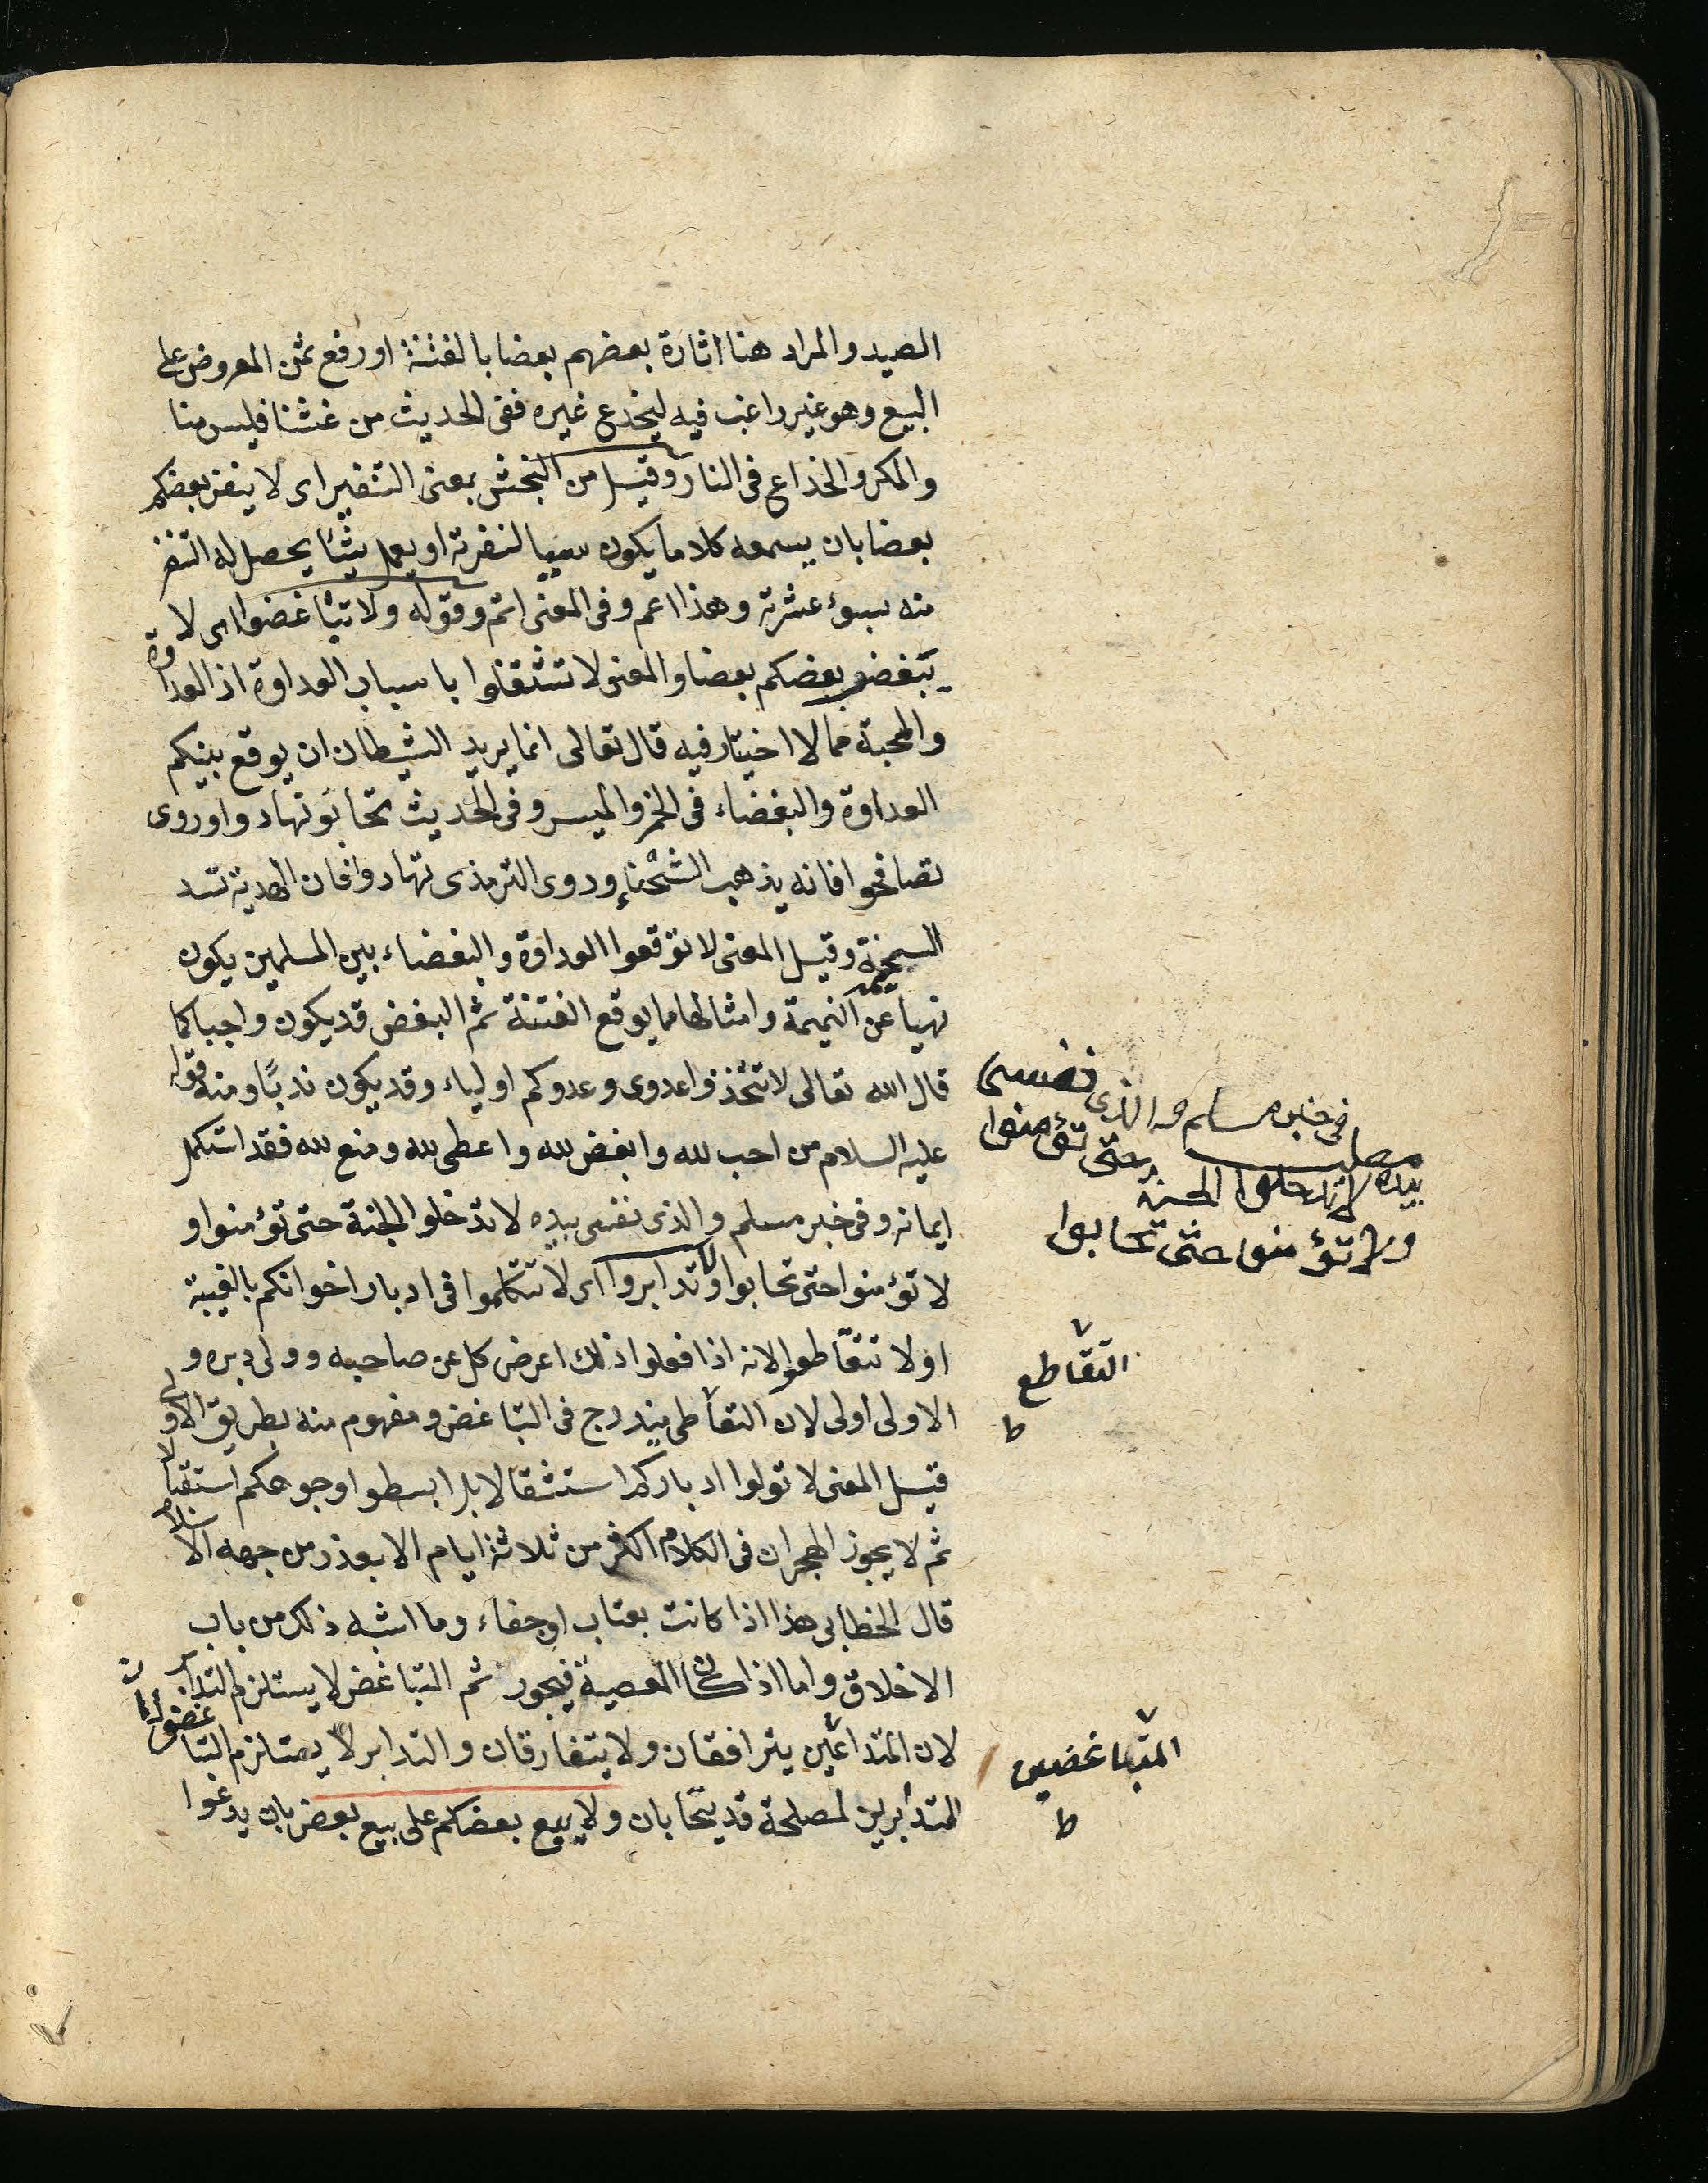 الصيد والمراد هنا اثارة بعضهم بعضا بالفتنة او رفع ثمن المعروض على
البيع وهو غير راغب فيه ليخدع غيره ففى الحديث من غشنا فليس منا
والمكر والخداع فى النار وقيل من النجش بمعنى التنفير اى لا ينفر بعضكم
بعضا بان يسمعه كلاما يكون سببا لنفرته او يعمل شئا يحصل له التنفر
منه بسوء عشرته وهذا اعم وفى المعنى اتم وقوله ولا تباغضوا اى لا
يبغض بعضكم بعضا والمعنى لا تشتغلوا باسباب العداوة اذ العداوة
والمحبة مما لا اختيار فيه قال تعالى انما يريد الشيطان ان يوقع بينكم
العداوة والبغضاء فى الخمر والميسر وفى الحديث تحابو تهادوا وروى
تصافحوا فانه يذهب الشحناء وروى الترمذى تهادوا فان الهدية تسد
السخيمة وقيل المعنى لا توقعوا العداوة والبغضاء بين المسلمين يكون
نهيا عن النميمة وامثالها مما يوقع الفتنة ثم البغض قد يكون واجبا كما
قال الله تعالى لا تتخذوا عدوى وعدوكم اولياء وقد يكون ندبا ومنه قوله
عليه السلام من احب لله وابغض لله واعطى لله ومنع لله فقد استكمل
ايمانه وفى خبر مسلم والذى نفسى بيده لا تدخلو الجنة حتى تؤمنوا و
لا تؤمنوا حتى تحابوا ولا تدابروا اى لا تتكلموا فى ادبار اخوانكم بالغيبة
او لا تتقاطعوا لانه اذا فعلوا ذلك اعرض كل عن صاحبه وولى دبره و
الاولى اولى لان التقاطى يندرج فى التباغض ومفهوم منه بطريق الاولى
قيل المعنى لا تولوا ادباركم استثقالا بل ابسطوا وجوهكم استقبالا
ثم لا يجوز الهجران فى الكلام اكثر من ثلاثة ايام الا بعذر من جهة الاسلام
قال الخطابى هذا اذا كانت بعتاب او جفاء وما اشبه ذلك من باب
الاخلاق واما اذا كان المعصية فيجوز ثم التباغض لا يستلزم التدابر
لان المتداعين يترافقان ولا يتفارقان والتدابر لا يستلزم التباغض لان
المتدابرين لمصلحة قد يتحابان ولا يبيع بعضكم على بيع بعض بان يدعوا
فى خبر مسلم والذى نفسى
بيده لا تدخلوا الجنة حتى تؤمنوا
ولا تؤمنوا حتى تحابوا
التقاطع
ط
المتباغضين
ط